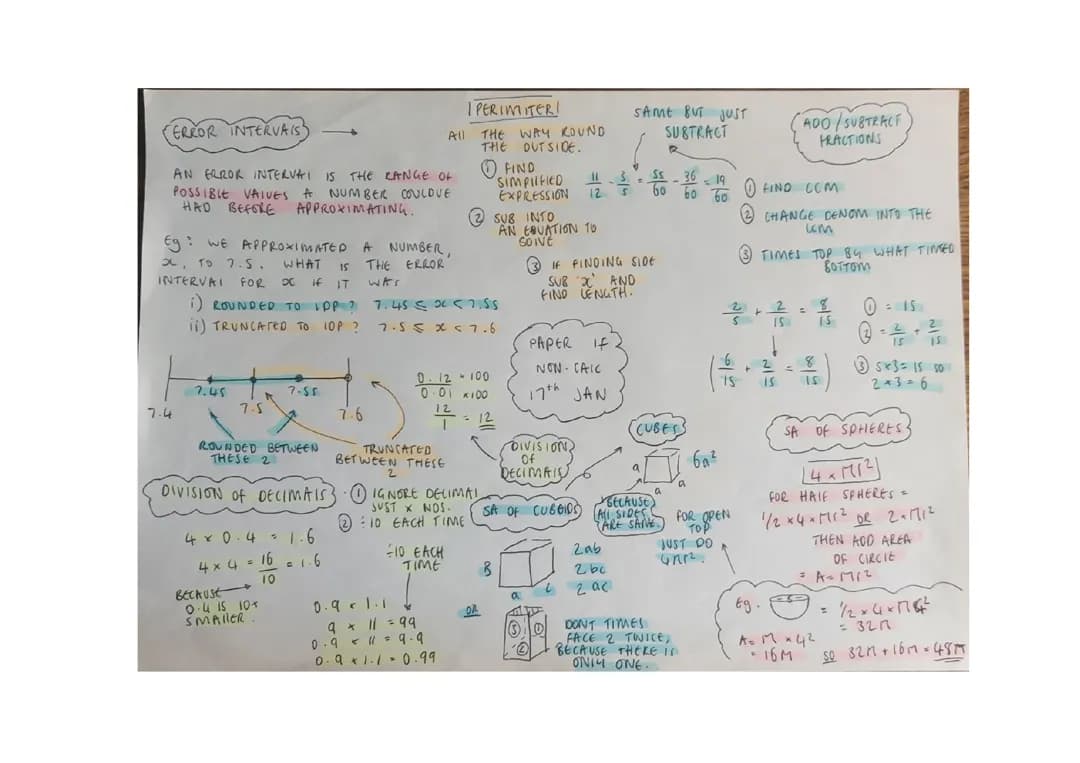 ERROR INTERVALS
AN ERROR INTERVAL IS THE RANGE OF
POSSIBLE VALUES A NUMBER COULDVE
HAD BEFORE APPROXIMATING.
Eg: WE APPROXIMATED A NUMBER,
x, TO 7.5. WHAT IS THE ERROR
INTERVAL FOR x IF IT WAS
i) ROUNDED TO 1DP? 7.45 ≤ x < 7.55
ii) TRUNCATED TO 1DP? 7.5 ≤ x < 7.6
7.4 7.45 7.5 7.55 7.6
ROUNDED BETWEEN
THESE 2
TRUNCATED
BETWEEN THESE
2
PERIMITER
All THE WAY ROUND
THE OUTSIDE.
① FIND
SIMPLIFIED
EXPRESSION
② SUB INTO
AN EQUATION TO
SOLVE
③ IF FINDING SIDE
SUB 'x' AND
FIND LENGTH.
SAME BUT JUST
SUBTRACT
11/12 - 3/5 = 55/60 - 36/60 = 19/60
ADD/SUBTRACT
FRACTIONS
① FIND LCM
② CHANGE DENOM INTO THE
LCM
③ TIMES TOP BY WHAT TIMED
BOTTOM
2/5 + 2/15 = 8/15
(6/15 + 2/15 = 8/15)
① = 15
② = 2/15 + 2/15
③ 5×3=15 so
2×3=6
PAPER 1F
NON-CALC
17th JAN
0.12 ×100
0.01 ×100
12/1 = 12
DIVISION
OF
DECIMALS
DIVISION OF DECIMALS
① IGNORE DECIMAL
JUST × NOS.
② ÷10 EACH TIME
4 × 0.4 = 1.6
4 × 4 = 16/10 = 1.6
BECAUSE
0.4 IS 10×
SMALLER.
÷10 EACH
TIME
0.9 × 1.1
9 × 11 = 99
0.9 × 11 = 9.9
0.9 × 1.1 = 0.99
SA OF CUBOIDS
B a c
2ab
2bc
2ac
OR
③ ① ②
DONT TIMES
FACE 2 TWICE,
BECAUSE THERE IS
ONLY ONE.
CUBES
a a a
6a²
BECAUSE
All SIDES
ARE SAME.
FOR OPEN
TOP
JUST DO
4πr².
SA OF SPHERES
4 × πr²
FOR HALF SPHERES =
1/2 × 4 × πr² OR 2×πr²
THEN ADD AREA
OF CIRCLE
= A=πr²
Eg. = 1/2 × 4 × π4²
= 32π
A= π × 4²
= 16π
SO 32π + 16π = 48π